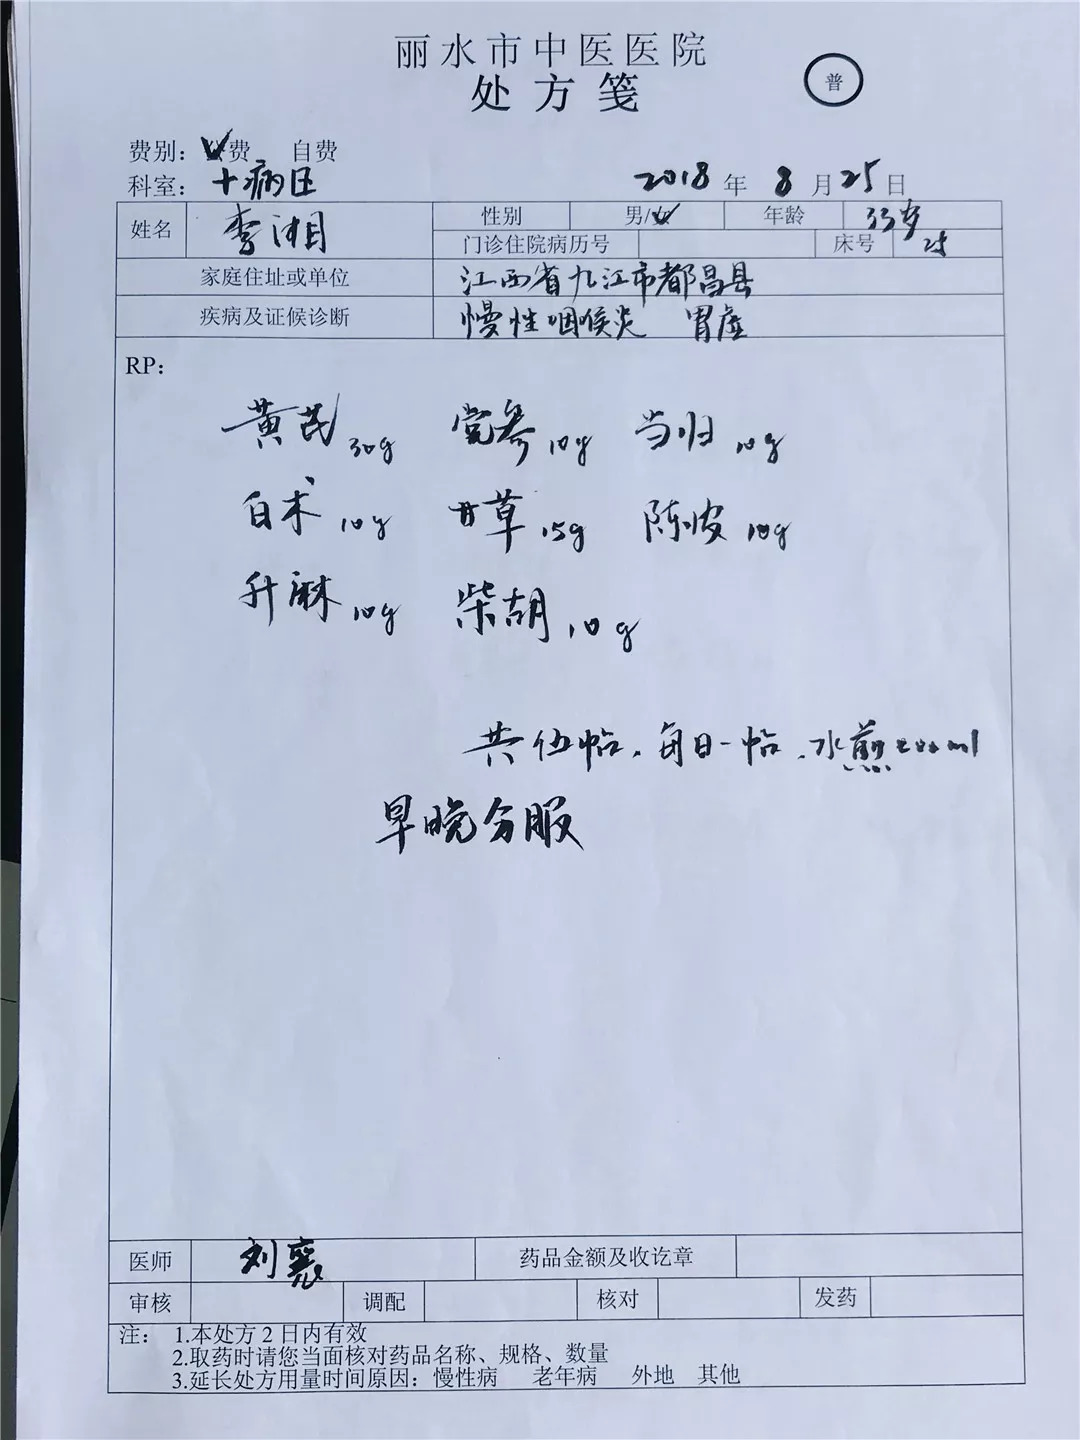 丽水市中医医院
处方笺
普
费别： 费 自费
科室： 十病区 2018年8月25日
姓名 李湘 性别 男/女 年龄 33岁
门诊住院病历号 床号 25
家庭住址或单位 江西省九江市都昌县
疾病及证候诊断 慢性咽喉炎 胃虚
RP：
黄芪30g 党参10g 当归10g
白术10g 甘草15g 陈皮10g
升麻10g 柴胡10g
共伍帖，每日一帖，水煎200ml
早晚分服
医师 刘 药品金额及收讫章
审核 调配 核对 发药
注： 1.本处方2日内有效
2.取药时请您当面核对药品名称、规格、数量
3.延长处方用量时间原因：慢性病 老年病 外地 其他